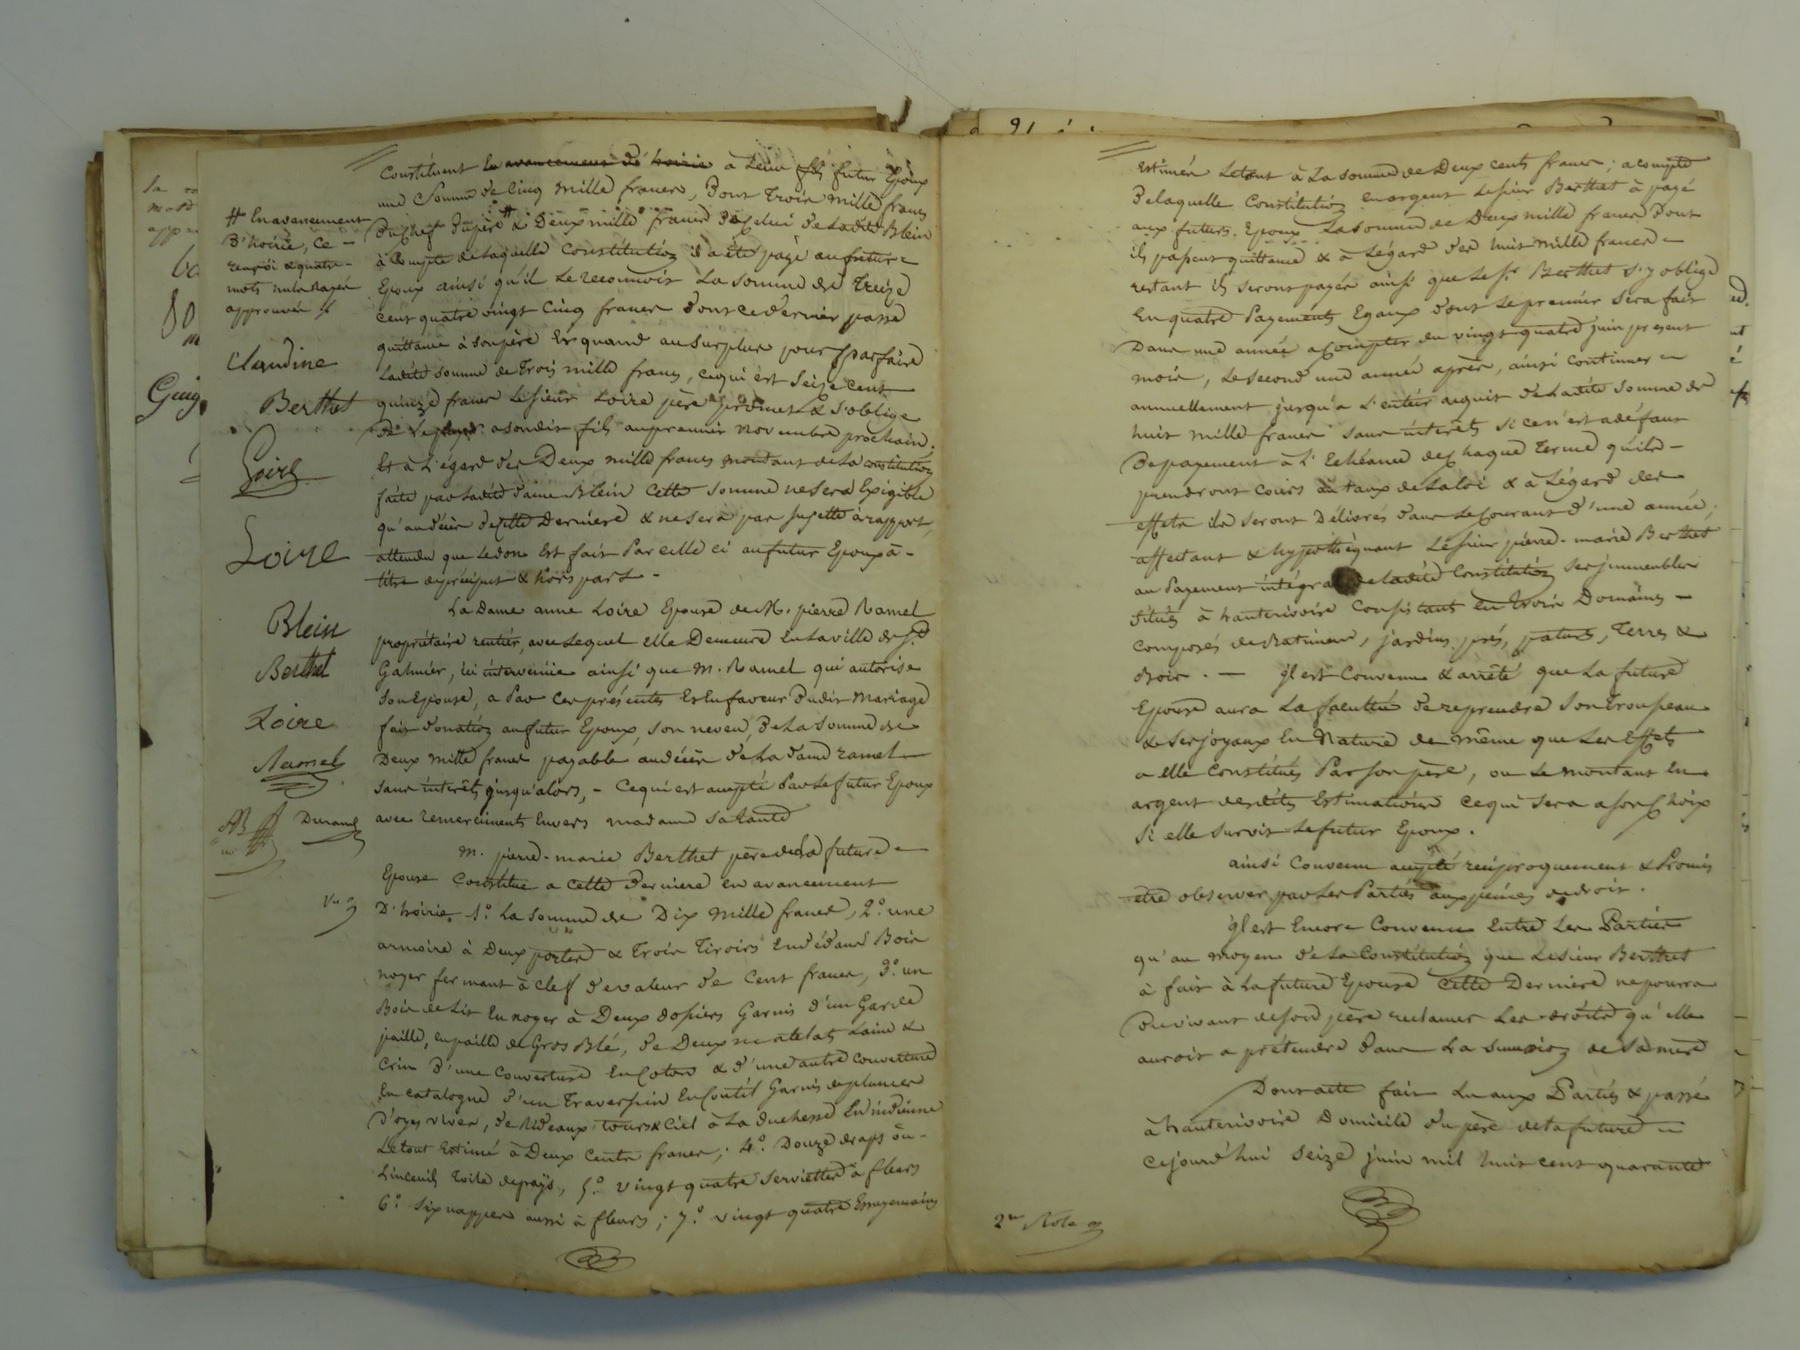 # En avancement
D'hoirie, ce
renvoi & quatre
mots nuls rayés
approuvés
Claudine
Berthet
Loire
Loire
Blein
Berthet
Loire
Ramel
Durand
Constituent en avancement de hoirie à Leur fils futur Epoux
une Somme de Cinq mille francs, Dont Trois mille francs
Du Chef Du père # & Deux mille francs De Celui de Ladite Blein
à Compte de Laquelle Constitution il a été payé au futur
Epoux ainsi qu'il Le reconnoit La somme de Treize
cent quatre vingt Cinq francs dont ce dernier passe
quittance à son père Et quand au surplus pour parfaire
Ladite somme de Trois mille francs, ce qui est Seize cent
quinze francs Le sieur Loire père promet & s'oblige
De Le payer a son dit fils au premier novembre prochain;
Et à L'égard des Deux mille francs montant de La constitution
faite par Ladite dame Blein Cette somme ne sera Exigible
qu'au décès de Cette Derniere & ne sera pas sujette à rapport,
attendu que Le don Est fait Par celle ci au futur Epoux à
titre de préciput & hors part -
La Dame anne Loire Epouse de M. pierre Ramel
propriétaire rentier, avec Lequel elle Demeure En La ville de St
Galmier, ici intervenue ainsi que M. Ramel qui autorise
Son Epouse, a Par Ces présentes Et En faveur Dudit Mariage
fait donation au futur Epoux, son neveu, De La Somme de
Deux mille francs payable au décès de La dame ramel
sans intérêts jusqu'alors, - Ce qui est accepté Par Le futur Epoux
avec remerciments Envers madame sa tante
M. pierre-marie Berthet père de La future
Epouse Constitue a Cette Derniere en avancement
D'hoirie 1º La somme de Dix mille francs, 2º une
armoire à Deux portes & Trois Tiroirs En dedans Bois
noyer fermant à clef de valeur de Cent francs, 3º un
Bois de Lit En noyer à Deux dossiers Garni d'un Garde
paille, en paille de Gros Blé, de Deux matelats Laine &
Crin D'une Couverture En Coton & d'une autre couverture
En catalogne d'un Traversin En Coutil Garni de plumes
D'oyes vives, de Rideaux tours & Ciel à La duchesse En indienne
Le tout Estimé à Deux Cents francs; 4º Douze draps ou
Linceuils Toile de pays, 5º vingt quatre Serviettes à fleurs
6º Six nappes aussi à fleurs; 7º vingt quatre Essuyemains
Estimés Le tout à La somme de Deux cents francs; a compte
De Laquelle Constitution en argent Le sieur Berthet à payé
aux futurs Epoux La somme de Deux mille francs Dont
ils passent quittance & à Légard des huit mille francs
restant ils seront payés ainsi que Le Sr Berthet s'y oblige
En quatre Payements Egaux dont Le premier sera fait
Dans une année a Compter du vingt quatre juin present
mois, Le second une année après, ainsi Continuer
annuellement jusqu'a L'entier acquit de Ladite somme de
huit mille francs sans intérêts Si ce n'est a défaut
De payement à L'Echéance de Chaque Terme qu'ils
prendront Cours au taux de La loi & à Légard des
effets ils seront Délivrés dans Le Courant d'une année;
affectant & hypothèquant Le sieur pierre-marie Berthet
au Payement intégral de Ladite Constitution ses immeubles
situés à hauterivoire Consistant en Trois Domaines
Composés de Batiment, jardins, prés, paturs, Terres &
Bois. - il est Convenu & arrêté que La future
Epouse aura La faculté de reprendre Son Trousseau
& Ses joyaux En Nature de même que Les Effets
a elle Constitués Par son père, ou Le montant En
argent desdites Estimations Ce qui Sera a son Choix
Si elle survit Le futur Epoux.
ainsi Convenu accepté réciproquement & Promis
etre observer par Les Parties aux peines de droit.
il est Encore Convenu Entre Les Parties
qu'au moyen de La Constitution que Le sieur Berthet
à fait à La future Epouse Cette Derniere ne pourra
Du vivant de son père reclamer Les droits qu'elle
auroit a prétendre dans La Succession de Sa mère
Dont acte fait Lu aux Parties & passé
à hauterivoire Domicile du père de La future
Ce jourd'hui Seize juin mil huit cent quarante
2me Role